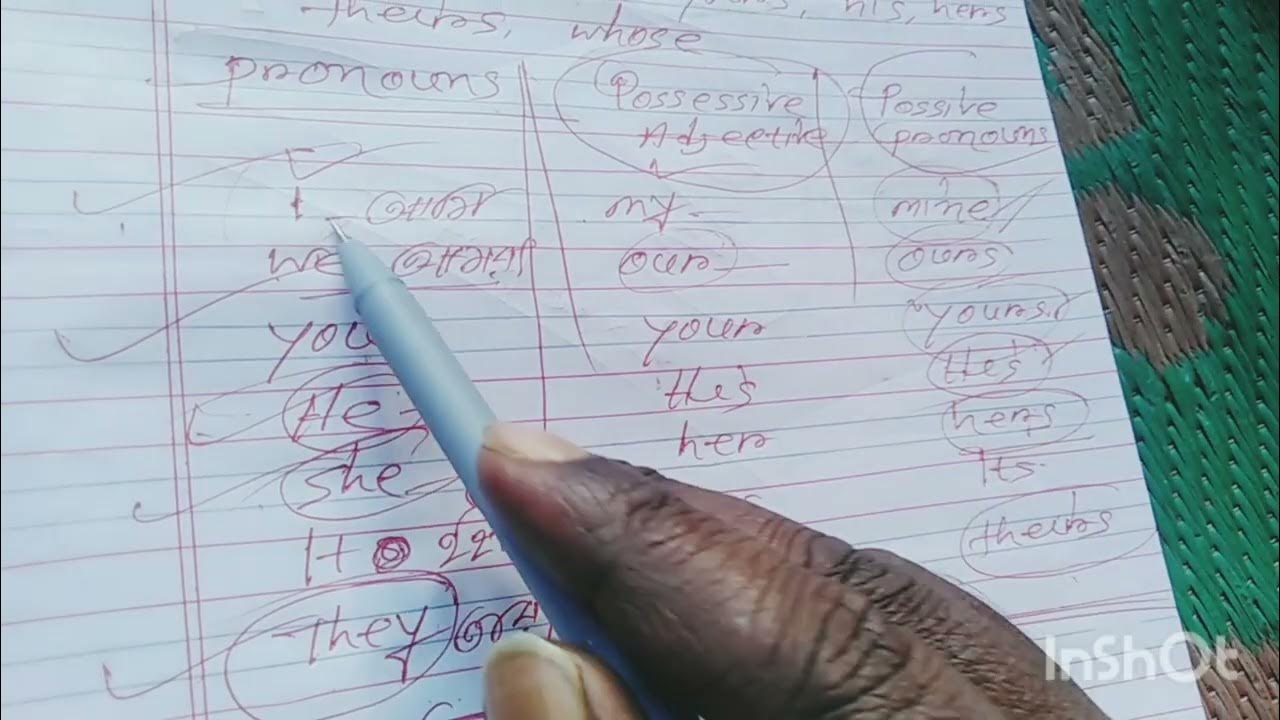 yours, his, hers
theirs, whose
pronouns Possessive Adjective Possive pronouns
I আমি my mine
we আমরা our ours
you your yours
He His His
she her hers
It Its
They theirs
InShOt